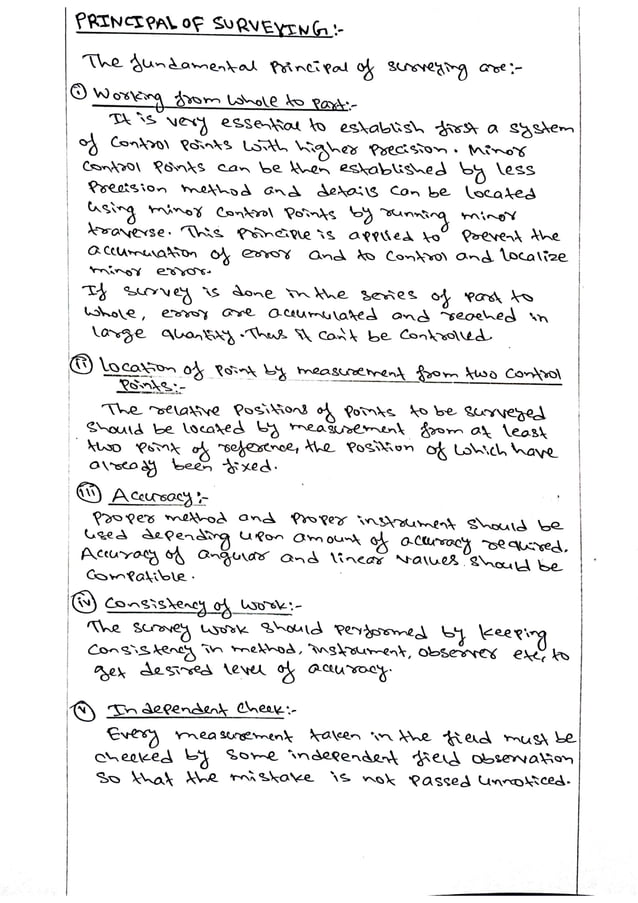 PRINCIPAL OF SURVEYING:-
The fundamental principal of surveying are:-
(i) Working from whole to part:-
It is very essential to establish first a system
of control points with higher precision. Minor
control points can be then established by less
precision method and details can be located
using minor control points by running minor
traverse. This principle is applied to prevent the
accumulation of error and to control and localize
minor error.
If survey is done in the series of part to
whole, error are accumulated and reached in
large quantity. Thus it can't be controlled
(ii) Location of point by measurement from two control
points:-
The relative positions of points to be surveyed
should be located by measurement from at least
two point of reference, the position of which have
already been fixed.
(iii) Accuracy:-
Proper method and proper instrument should be
used depending upon amount of accuracy required.
Accuracy of angular and linear values should be
compatible.
(iv) Consistency of work:-
The survey work should performed by keeping
consistency in method, instrument, observer etc, to
get desired level of accuracy.
(v) Independent check:-
Every measurement taken in the field must be
checked by some independent field observation
so that the mistake is not passed unnoticed.